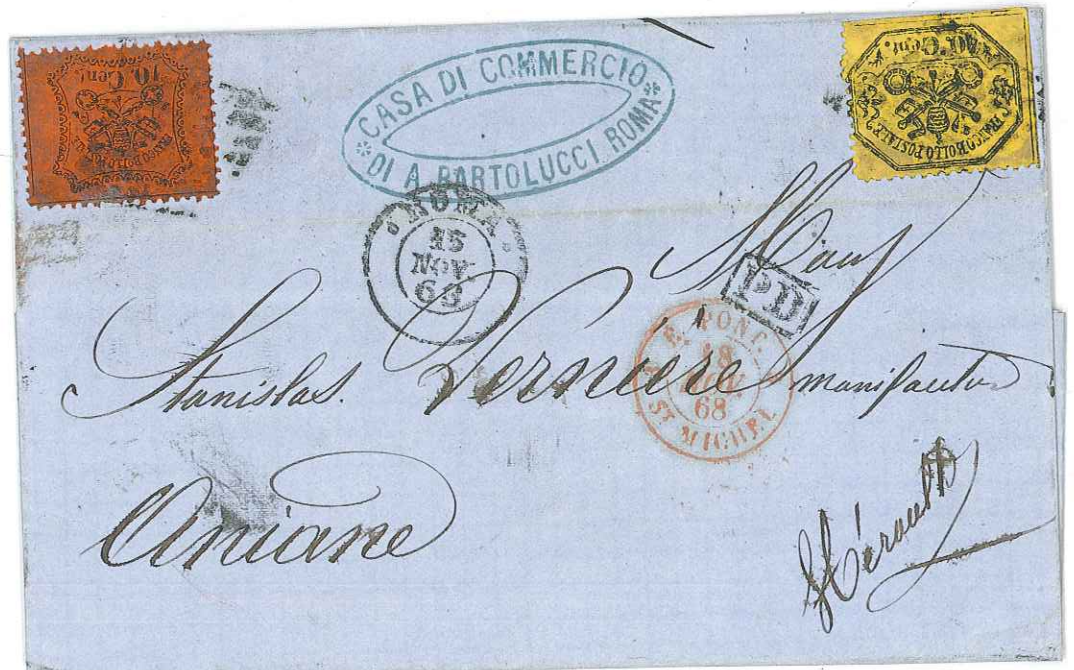 10. Cent.
FRANCO BOLLO POSTALE
CASA DI COMMERCIO
DI A BARTOLUCCI ROMA
40. Cent.
FRANCO BOLLO POSTALE
ROMA
15
NOV
68
PD
E. PONT.
18
NOV.
68
ST MICHEL
Stanislas. Vernière
Aniane
Hérault